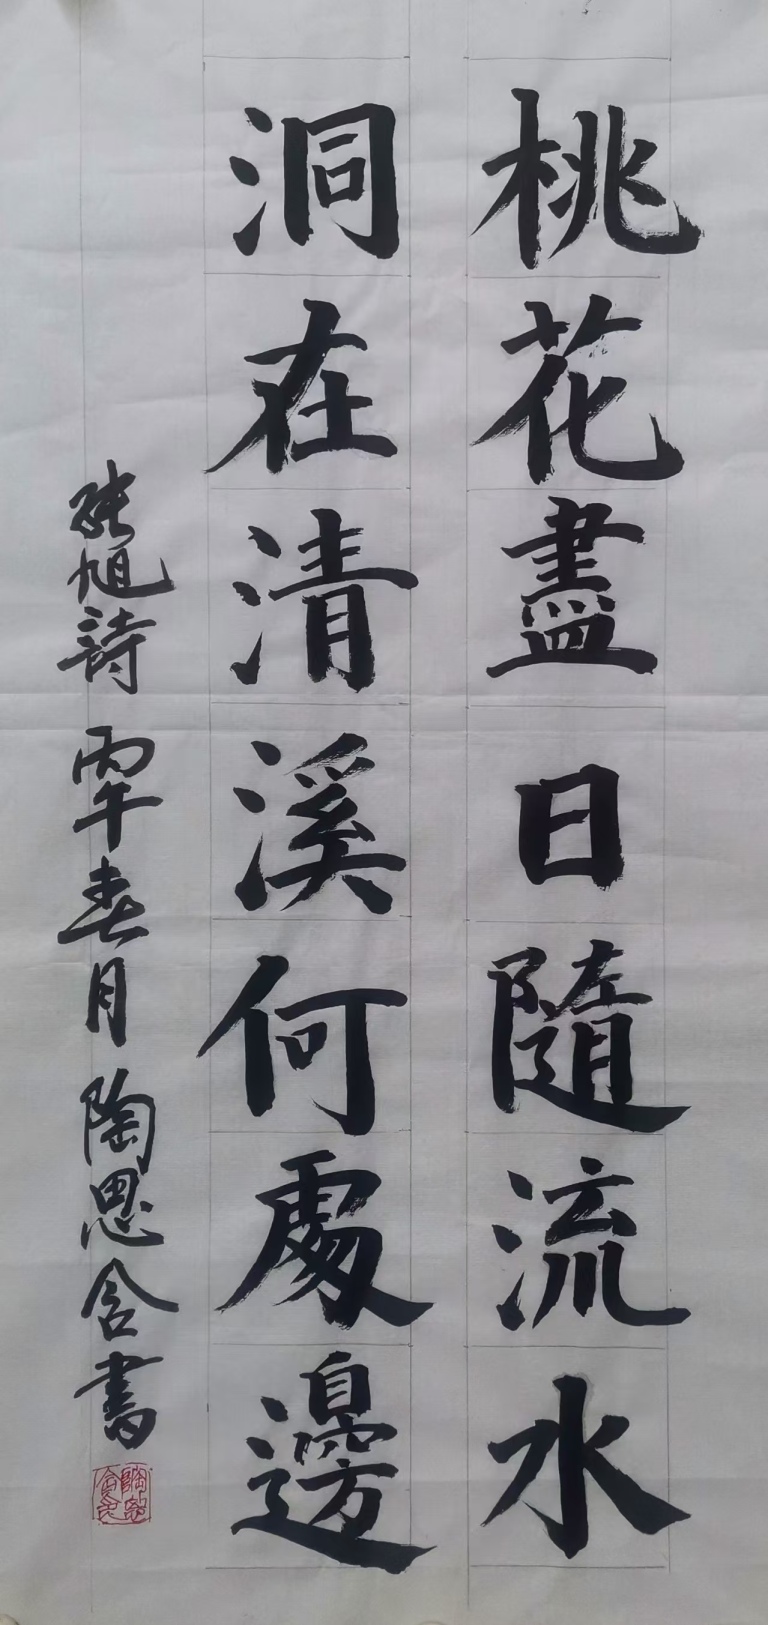 桃花盡日隨流水
洞在清溪何處邊
張旭詩 丙午春月 陶思含書